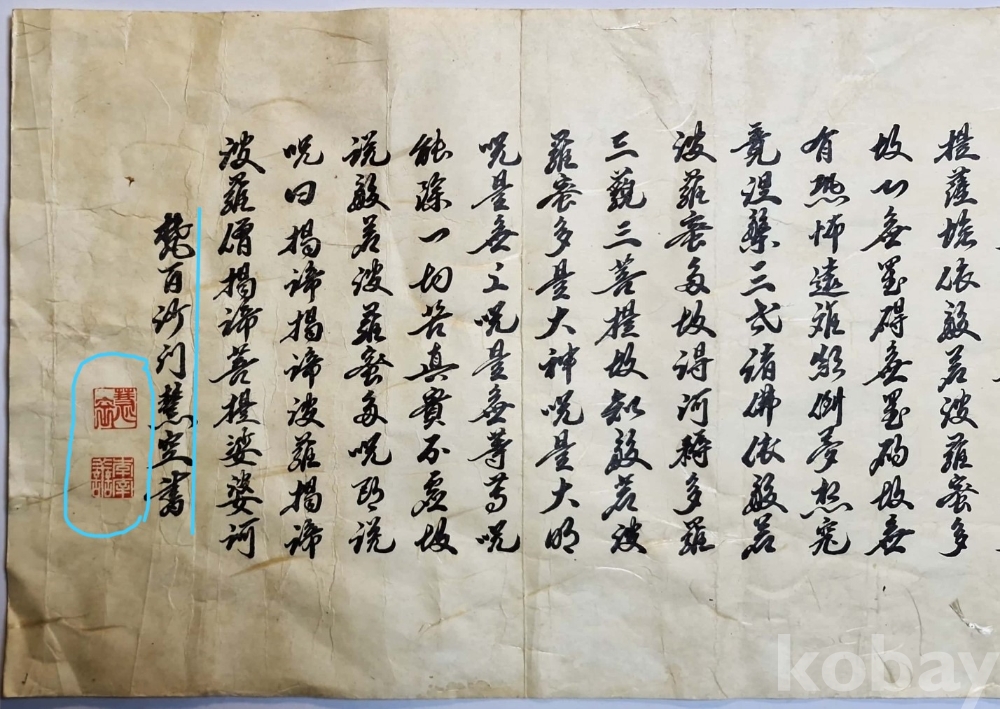 提薩埵依般若波羅蜜多
故心無罣碍無罣碍故無
有恐怖遠離顛倒夢想究
竟涅槃三世諸佛依般若
波羅蜜多故得阿耨多羅
三藐三菩提故知般若波
羅蜜多是大神呪是大明
呪是無上呪是無等等呪
能除一切苦真實不虛故
説般若波羅蜜多呪即説
呪曰揭諦揭諦波羅揭諦
波羅僧揭諦菩提娑婆訶
百沙门慧空書
kobay